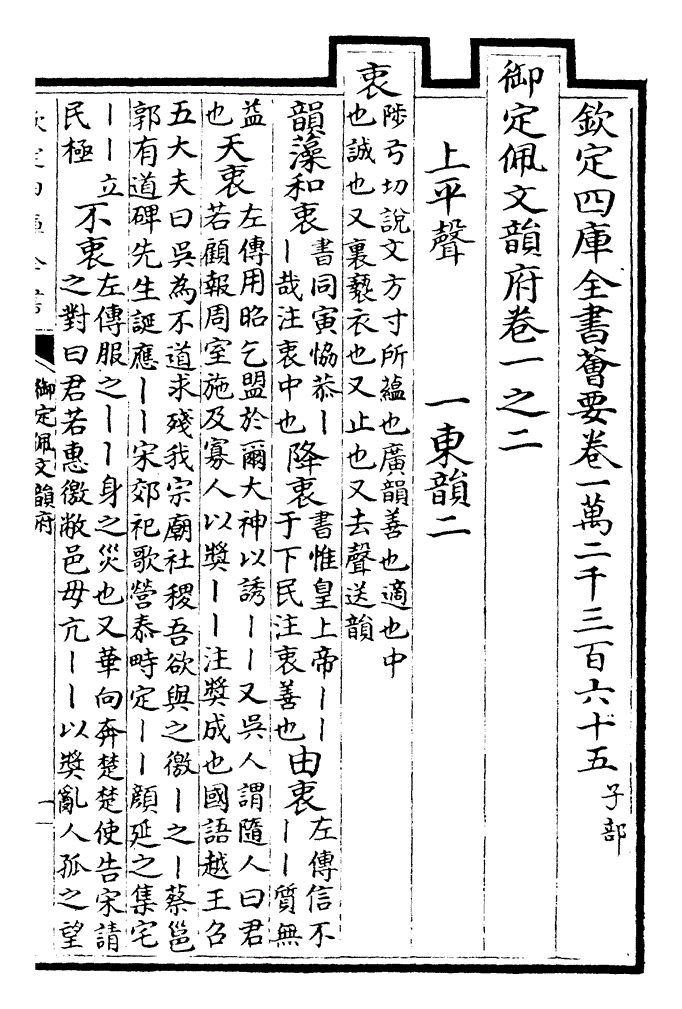 欽定四庫全書薈要卷一萬二千三百六十五 子部
御定佩文韻府卷一之二
上平聲 一東韻二
衷 陟弓切說文方寸所蘊也廣韻善也適也中
也誠也又裏褻衣也又止也又去聲送韻
韻藻和衷 書同寅恊恭丨
丨哉注衷中也
降衷 書惟皇上帝丨丨
于下民注衷善也
由衷 左傳信不
丨丨質無
益
也
天衷 左傳用昭乞盟於爾大神以誘丨丨又吳人謂隨人曰君
若顧報周室施及寡人以獎丨丨注獎成也國語越王召
五大夫曰吳為不道求殘我宗廟社稷吾欲與之徼丨之丨蔡邕
郭有道碑先生誕應丨丨宋郊祀歌營泰畤定丨丨顔延之集宅
丨丨立
民極
不衷 左傳服之丨丨身之災也又華向奔楚楚使告宋請
之對曰君若惠徼敝邑毋亢丨丨以獎亂人孤之望
欽定四庫全書
御定佩文韻府
一